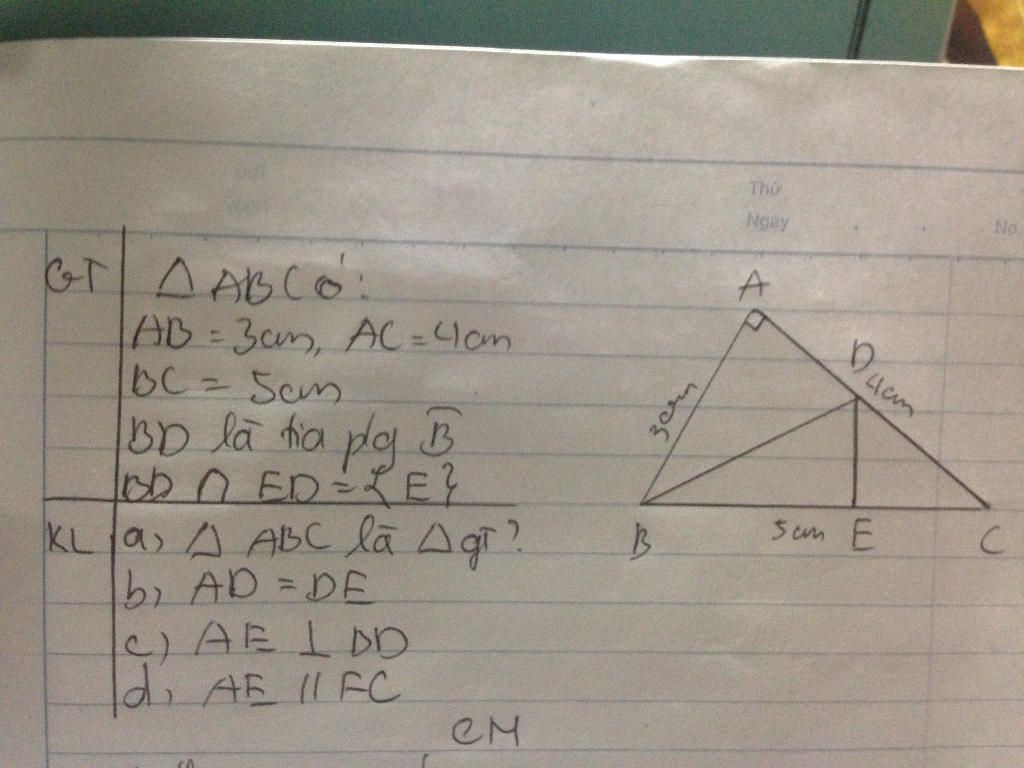 Thứ
Ngày
No.
GT
△ ABC ó:
AB = 3cm, AC = 4cm
BC = 5cm
BD là tia plg B̂
BD ∩ ED = {E}
KL
a, △ ABC là △ gì?
b, AD = DE
c) AE ⊥ BD
d, AE // FC
CM
A
D
4cm
3cm
B
5cm
E
C